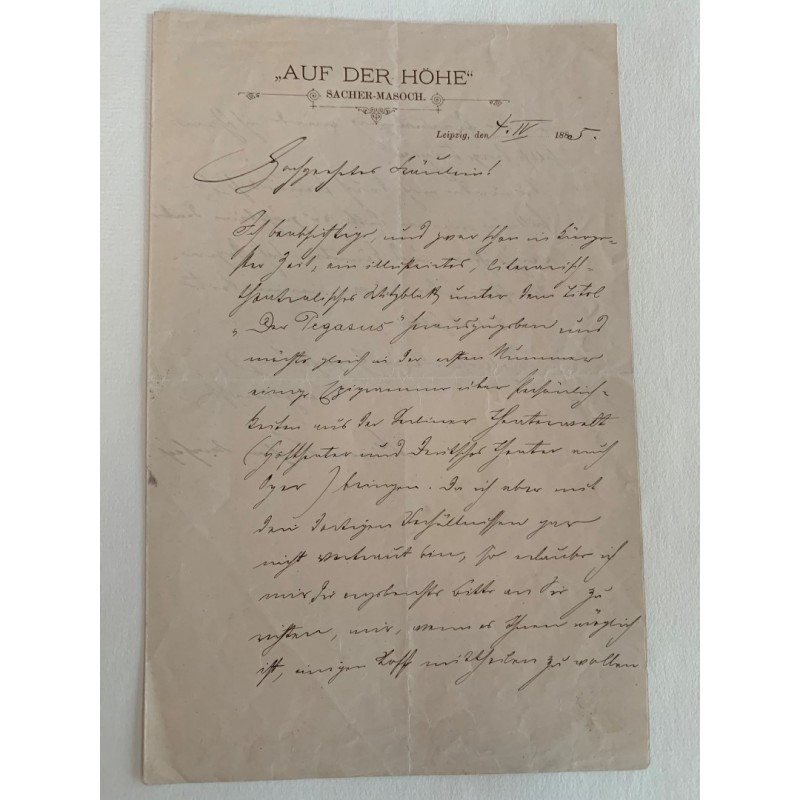 „AUF DER HÖHE“
SACHER-MASOCH.
Leipzig, den 4. IV 1885.
Hochgeehrtes Fräulein!
Ich beabsichtige, und zwar schon in kürze-
ster Zeit, ein illustrirtes, literarisch-
theatralisches Witzblatt unter dem Titel
„Der Pegasus“ herauszugeben und
möchte gleich in der ersten Nummer
einige Epigramme über Persönlich-
keiten aus der Berliner Theaterwelt
(Hoftheater und Deutsches Theater auch
Oper) bringen. Da ich aber mit
den dortigen Verhältnissen gar
nicht vertraut bin, so erlaube ich
mir die ergebenste Bitte an Sie zu
richten, mir, wenn es Ihnen möglich
ist, einigen Stoff mittheilen zu wollen